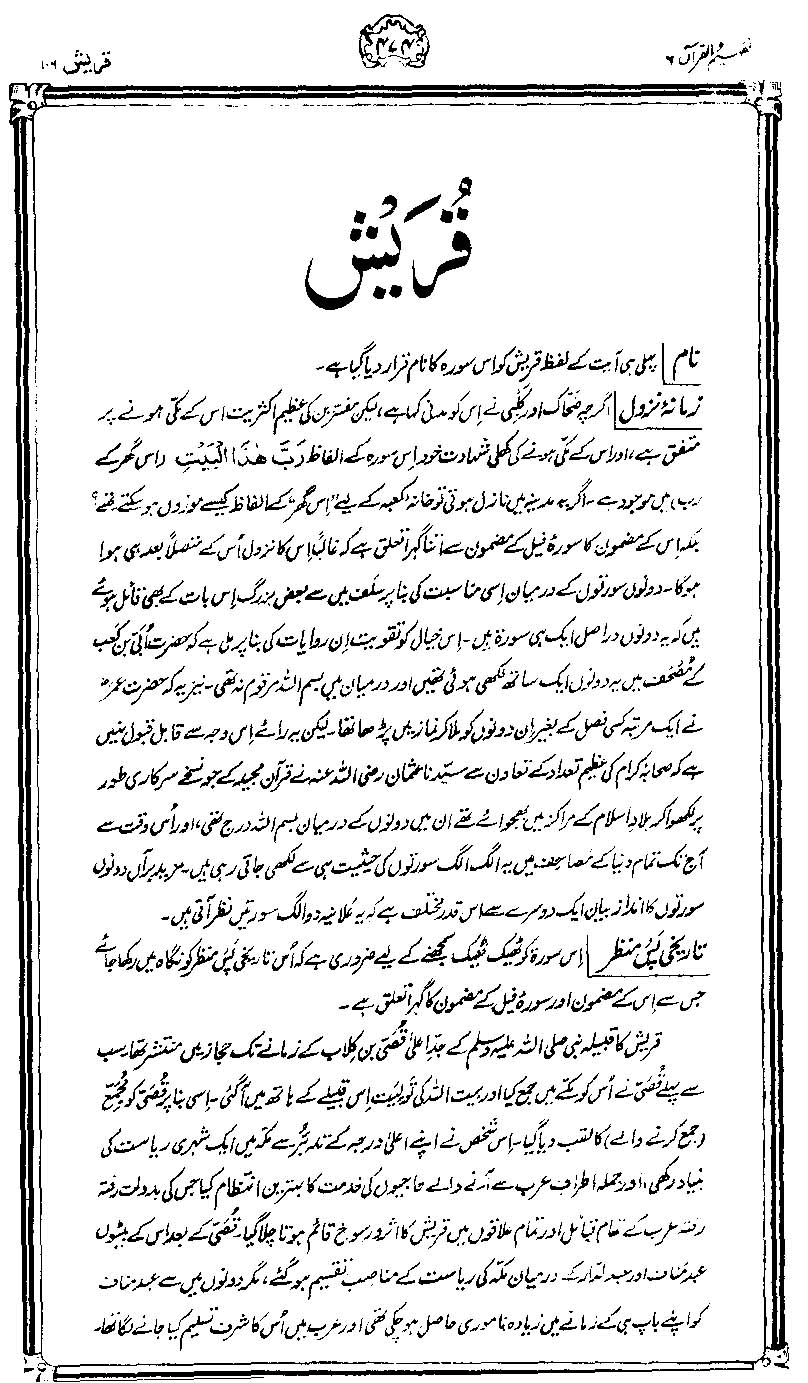 تفہیم القرآن ۶
۴۷۴
قریش ۱۰۶
قُرَیْش
نام | پہلی ہی آیت کے لفظ قریش کو اس سورہ کا نام قرار دیا گیا ہے۔
زمانۂ نزول | اگرچہ ضحاک اور کلبی نے اِس کو مدنی کہا ہے، لیکن مفسّرین کی عظیم اکثریت اس کے مکّی ہونے پر
متفق ہے، اور اس کے مکّی ہونے کی کھلی شہادت خود اِس سورہ کے الفاظ رَبَّ هٰذَا الْبَيْتِ (اس گھر کے
رب) میں موجود ہے۔ اگر یہ مدینہ میں نازل ہوتی تو خانہ کعبہ کے لیے "اِس گھر" کے الفاظ کیسے موزوں ہو سکتے تھے؟
بلکہ اِس کے مضمون کا سورۂ فیل کے مضمون سے اتنا گہرا تعلق ہے کہ غالباً اِس کا نزول اُس کے متصلاً بعد ہی ہوا
ہوگا۔ دونوں سورتوں کے درمیان اِسی مناسبت کی بنا پر سلف میں سے بعض بزرگ اِس بات کے بھی قائل ہوئے
ہیں کہ یہ دونوں دراصل ایک ہی سورۃ ہیں۔ اِس خیال کو تقویت اِن روایات کی بنا پر ملی ہے کہ حضرت اُبَیّ بن کعب
کے مُصْحَف میں یہ دونوں ایک ساتھ لکھی ہوئی تھیں اور درمیان میں بسم اللہ مرقوم نہ تھی۔ نیز یہ کہ حضرت عمرؓ
نے ایک مرتبہ کسی فصل کے بغیر ان دونوں کو ملا کر نماز میں پڑھا تھا۔ لیکن یہ رائے اِس وجہ سے قابل قبول نہیں
ہے کہ صحابۂ کرام کی عظیم تعداد کے تعاون سے سیّدنا عثمان رضی اللہ عنہ نے قرآن مجید کے جو نسخے سرکاری طور
پر لکھوا کر بلادِ اسلام کے مراکز میں بھجوائے تھے ان میں دونوں کے درمیان بسم اللہ درج تھی، اور اُس وقت سے
آج تک تمام دنیا کے مصاحف میں یہ الگ الگ سورتوں کی حیثیت ہی سے لکھی جاتی رہی ہیں۔ مزید برآں دونوں
سورتوں کا انداز بیان ایک دوسرے سے اس قدر مختلف ہے کہ یہ علانیہ دو الگ سورتیں نظر آتی ہیں۔
تاریخی پس منظر | اِس سورۃ کو ٹھیک ٹھیک سمجھنے کے لیے ضروری ہے کہ اُس تاریخی پس منظر کو نگاہ میں رکھا جائے
جس سے اِس کے مضمون اور سورۂ فیل کے مضمون کا گہرا تعلق ہے۔
قریش کا قبیلہ نبی صلی اللہ علیہ وسلم کے جدِّ اعلیٰ قُصَیّ بن کلاب کے زمانے تک حجاز میں منتشر تھا۔ سب
سے پہلے قُصَیّ نے اُس کو مکّے میں جمع کیا اور بیت اللہ کی تَولیَت اِس قبیلے کے ہاتھ میں آگئی۔ اِسی بنا پر قُصَیّ کو مُجَمِّع
(جمع کرنے والے) کا لقب دیا گیا۔ اِس شخص نے اپنے اعلیٰ درجہ کے تدبّر سے مکّہ میں ایک شہری ریاست کی
بنیاد رکھی، اور جملہ اطرافِ عرب سے آنے والے حاجیوں کی خدمت کا بہترین انتظام کیا جس کی بدولت رفتہ
رفتہ عرب کے تمام قبائل اور تمام علاقوں میں قریش کا اثر و رسوخ قائم ہوتا چلا گیا۔ قُصَیّ کے بعد اس کے بیٹوں
عبد مناف اور عبد الدّار کے درمیان مکّہ کی ریاست کے مناصب تقسیم ہو گئے، مگر دونوں میں سے عبد مناف
کو اپنے باپ ہی کے زمانے میں زیادہ ناموری حاصل ہو چکی تھی اور عرب میں اُس کا شرف تسلیم کیا جانے لگا تھا۔